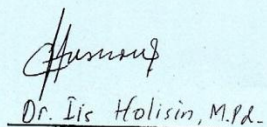 Dr. Iis Holisin, M.Pd.